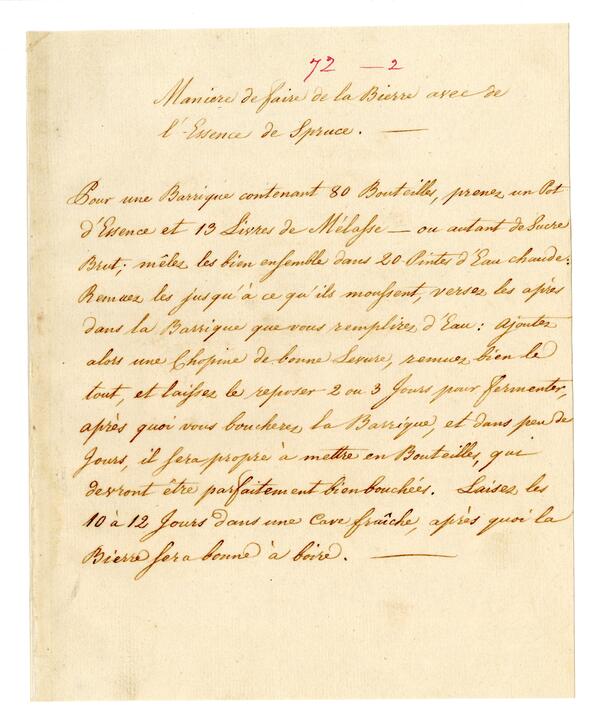 72 — 2
Maniere de faire de la Bierre avec de
l'Essence de Spruce. —
Pour une Barrique contenant 80 Bouteilles, prenez un Pot
d'Essence et 13 Livres de Mélasse — ou autant de Sucre
Brut; mêlez les bien ensemble dans 20 Pintes d'Eau chaude:
Remuez les jusqu'à ce qu'ils moussent, versez les après
dans la Barrique que vous remplirez d'Eau: ajoutez
alors une Chopine de bonne Levure, remuez bien le
tout, et laissez le reposer 2 ou 3 Jours pour fermenter,
après quoi vous boucherez la Barrique, et dans peu de
Jours, il sera propre à mettre en Bouteilles, qui
devront être parfaitement bien bouchées. Laisez les
10 à 12 Jours dans une Cave fraîche, après quoi la
Bierre sera bonne à boire. —